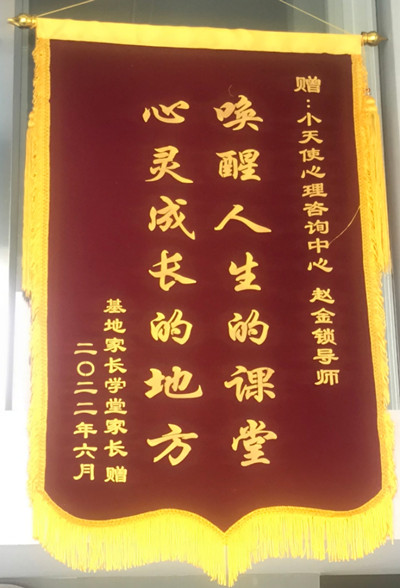 赠:小天使心理咨询中心 赵金锁导师
唤醒人生的课堂
心灵成长的地方
基地家长学堂家长 赠
二〇二二年六月